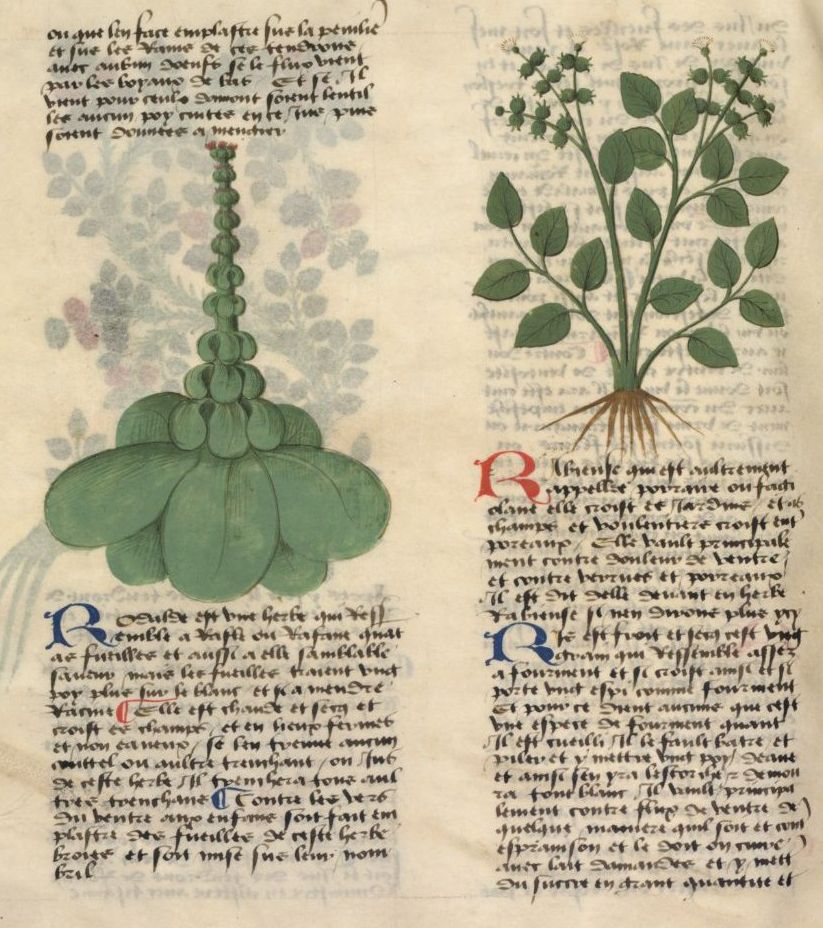 ou que len face emplastre sus la penilie
et sus les Rains de ces tendrons
avec aubun doeufs se le flux vient
par les boyaux de bas Et se Il
vient pour ceulx damont soient lentil
les aucun poy cuites en ce Jus puis
soient donnees a mengier
Rodulde est une herbe qui Ress
emble a Raffle ou Rafane quat
as fueilles et aussi a elle samblable
saveur mais les fueilles traient ung
poy plus sur le blanc et si a mendre
Racine Elle est chaude et seiche et
croist es champs et en lieux fermes
et non eaveux se len trenne aucun
couttel ou aultre trenchant ou Jus
de ceste herbe Il trenchera tous aul
tres trenchans Contre les vers
du ventre aux enfans soit fait em
plastre des fueilles de ceste herbe
broiee et soit mise sus leur nom
bril
Rabiense qui est aultrement
appellee
elle croist es Jardins et es
champs et voulentiers croist ent
poreaux Elle vault principale
ment contre douleur de ventre
et contre verrues et porreaux
Il est dit delle devant en herbe
Rabiense si nen dirons plus cy
Ris est froit et secq cest ung
grain qui Ressemble assez
a fourment et si croist ainsi et si
porte ung espi comme fourment
Et pour ce dient aucuns que cest
une espece de fourment quant
Il est cueilli Il le fault batre et
piler et y mettre ung poy deaue
et ainsi sen yra lescorche et demou
ra tout blanc Il vault principa
lement contre flux de ventre de
quelque maniere quil soit et con
espramson et le doit on cuire
avec lait damandes et y mett
du succre en grant quantite et